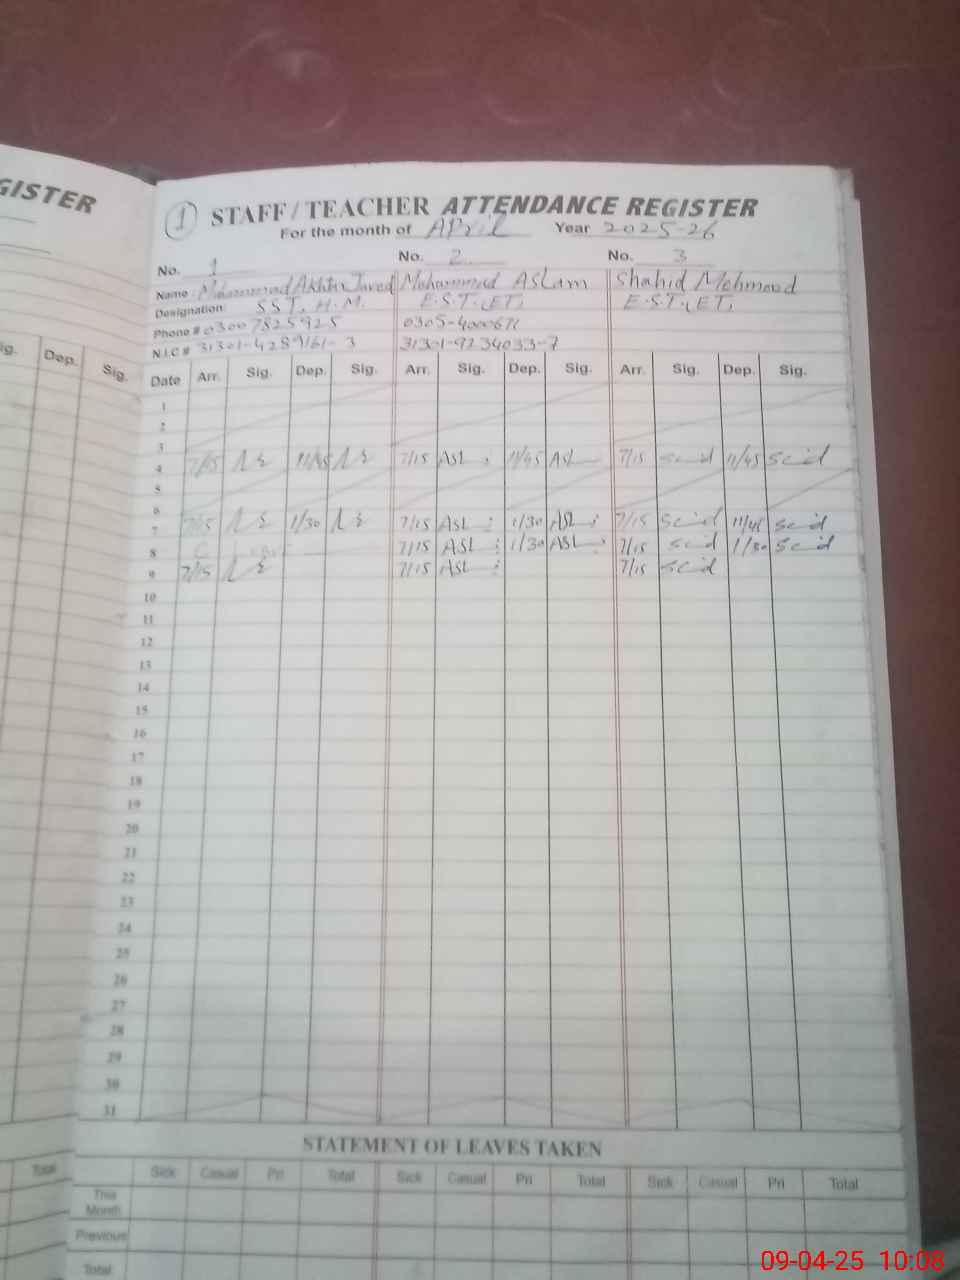 GISTER
1 STAFF / TEACHER ATTENDANCE REGISTER
For the month of April Year 2025-26
No. 1 No. 2 No. 3
Name: Mohammad Akhtar Javed Mohammad Aslam Shahid Mehmood
Designation: SST, H.M. E.S.T. (ET) E.S.T. (ET)
Phone # 03007825925
N.I.C # 31301-4289161-3 31301-9234033-7
ig. Dep. Sig.
Date Arr. Sig. Dep. Sig. Arr. Sig. Dep. Sig. Arr. Sig. Dep. Sig.
1
2
3
4 7/15 11/45 7/15 ASL 11/45 ASL 7/15 11/45
5
6
7 7/15 1/30 7/15 ASL 1/30 ASL 7/15
8 7/15 ASL 1/30 ASL 7/15 1/30
9 7/15 7/15 ASL 7/15
10
11
12
13
14
15
16
17
18
19
20
21
22
23
24
25
26
27
28
29
30
31
STATEMENT OF LEAVES TAKEN
Total Sick Casual Pri Total Sick Casual Pri Total Sick Casual Pri Total
This Month
Previous
Total
09-04-25 10:08